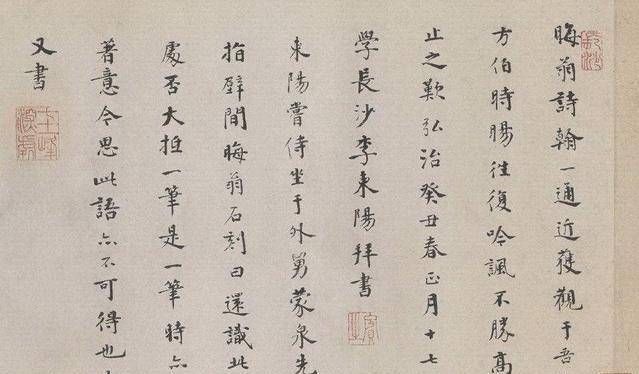 晦翁詩翰一通近獲觀于吾
方伯時暘往復吟諷不勝高
止之歎弘治癸丑春正月十七
學長沙李東陽拜書
東陽嘗侍坐于外舅蒙泉先
指壁間晦翁石刻曰還識此
處否大抵一筆是一筆時亦
著意今思此語亦不可得也
又書